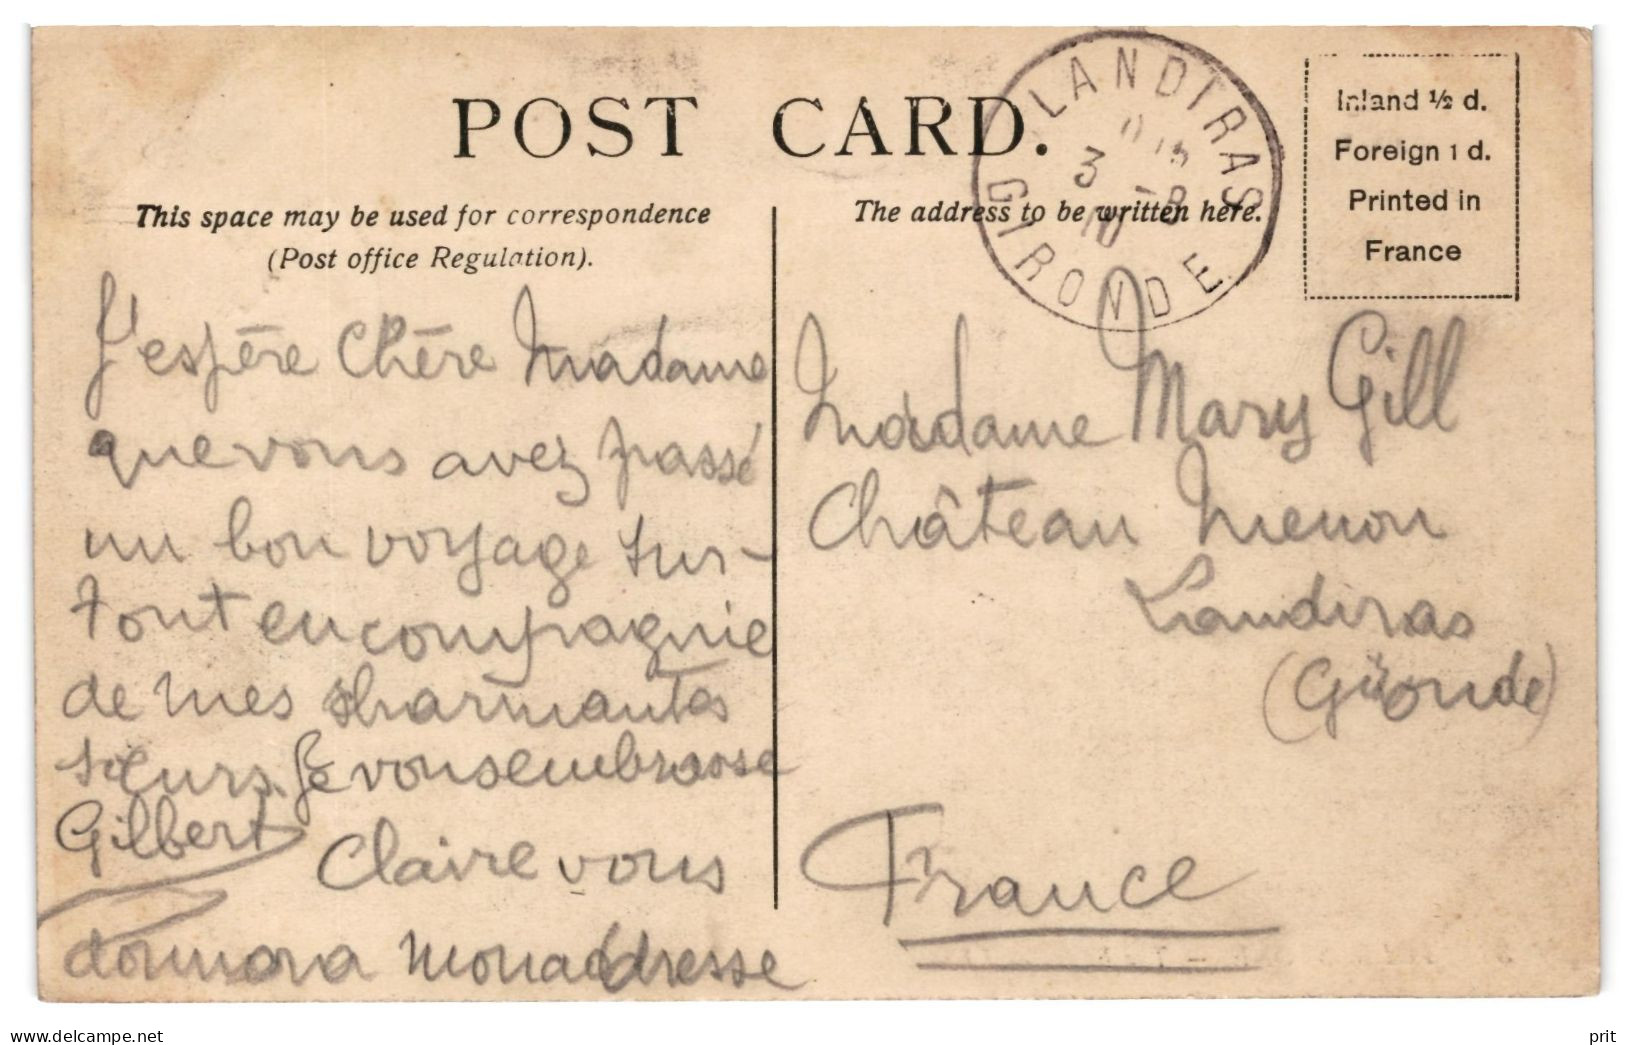 POST CARD.
This space may be used for correspondence
(Post office Regulation).
The address to be written here.
Inland ½ d.
Foreign 1 d.
Printed in
France
LANDIRAS
3 -8
10
GIRONDE
J'espère Chère Madame
que vous avez passé
un bon voyage sur-
tout en compagnie
de mes charmantes
sœurs. Je vous embrasse
Gilbert
Claire vous
donnera mon addresse
Madame Mary Gill
Château Menon
Landiras
(Gironde)
France
www.delcampe.net
prit